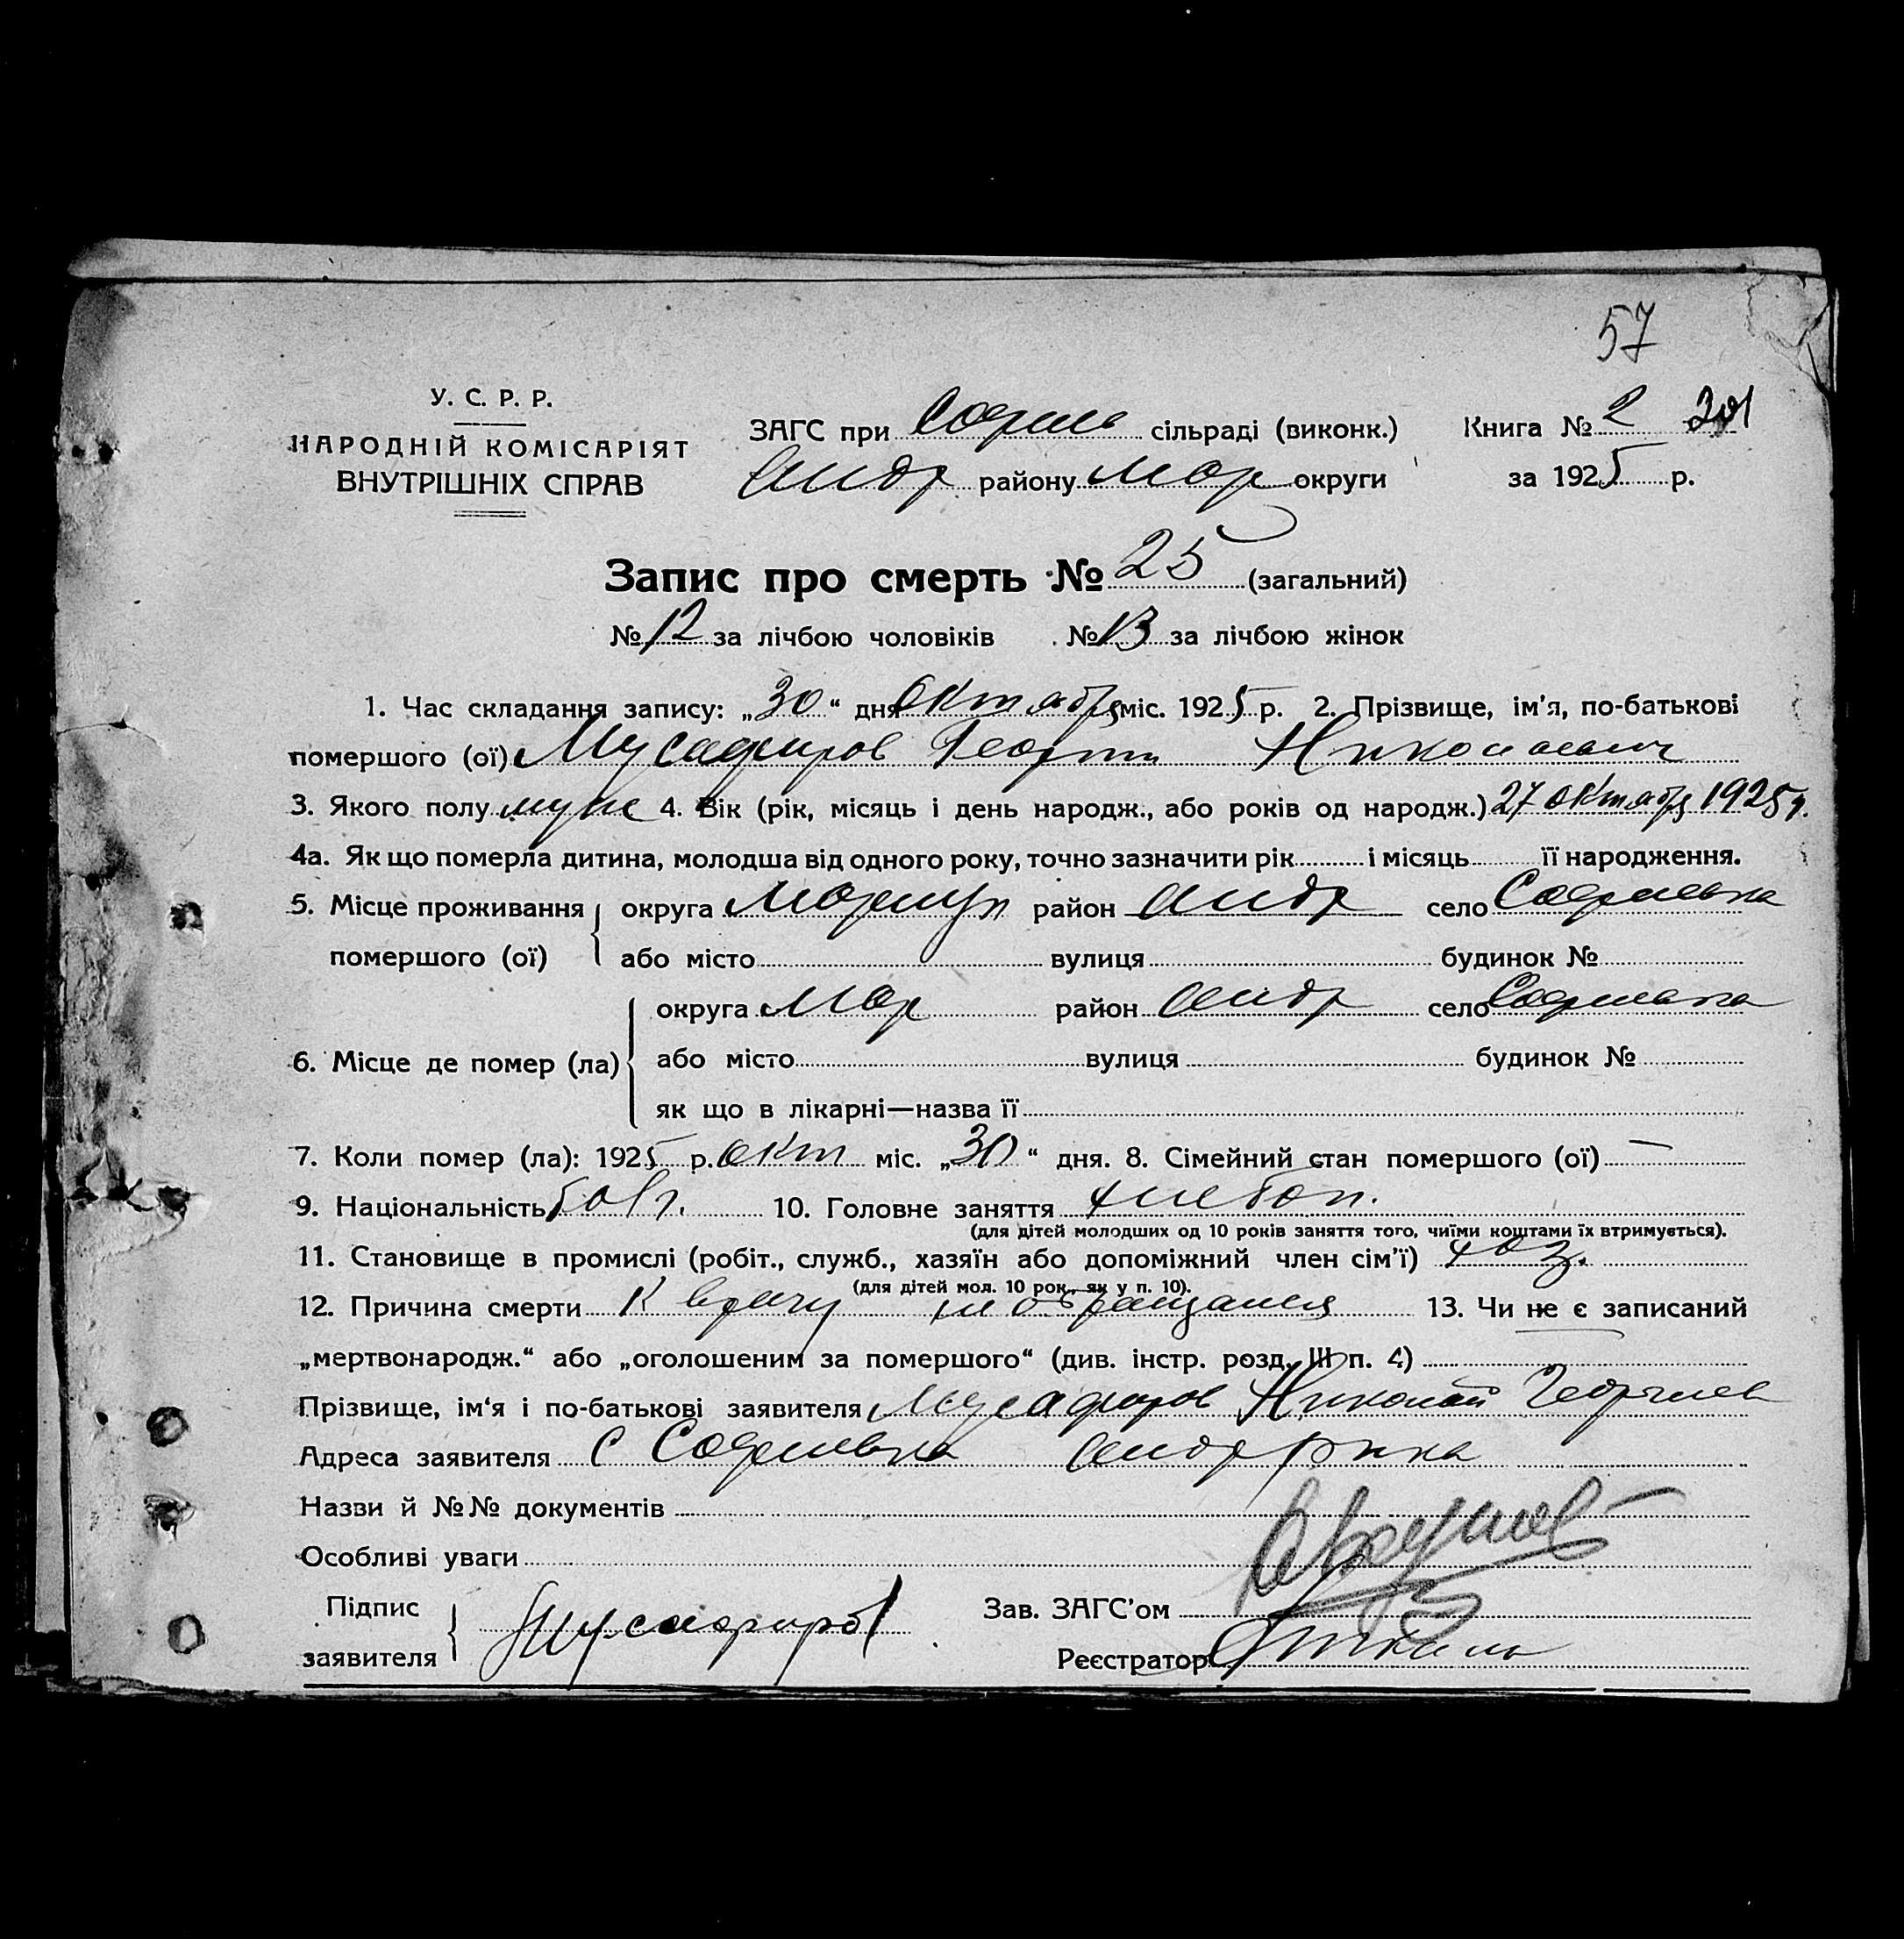 57
У. С. Р. Р.
НАРОДНІЙ КОМІСАРІЯТ
ВНУТРІШНІХ СПРАВ
ЗАГС при Софиев сільраді (виконк.) Книга № 2 201
Андр району Мар округи за 1925 р.
Запис про смерть № 25 (загальний)
№ 12 за лічбою чоловіків № 13 за лічбою жінок
1. Час складання запису: „30“ дня Октября міс. 1925 р. 2. Прізвище, ім'я, по-батькові
помершого (ої) Мусафиров Георгий Николаевич
3. Якого полу муж 4. Вік (рік, місяць і день народж., або років од народж.) 27 октября 1925 г.
4а. Як що померла дитина, молодша від одного року, точно зазначити рік і місяць її народження.
5. Місце проживання округа Мариуп район Андр село Софиевка
помершого (ої) або місто вулиця будинок №
округа Мар район Андр село Софиевка
6. Місце де помер (ла) або місто вулиця будинок №
як що в лікарні—назва її
7. Коли помер (ла): 1925 р. окт міс. „30“ дня. 8. Сімейний стан помершого (ої) —
9. Національність болг. 10. Головне заняття хлебоп.
(для дітей молодших од 10 років заняття того, чиїми коштами їх втримується).
11. Становище в промислі (робіт., служб., хазяїн або допоміжний член сім'ї) хоз.
(для дітей мол. 10 рок., як у п. 10).
12. Причина смерти К врачу не обращался 13. Чи не є записаний
„мертвонародж.“ або „оголошеним за помершого“ (див. інстр. розд. III п. 4)
Прізвище, ім'я і по-батькові заявителя Мусафиров Николай Георгиев
Адреса заявителя с Софиевка Андр р-на
Назви й №№ документів
Особливі уваги
Підпис Зав. ЗАГС'ом
заявителя Мусафиров Реєстратор